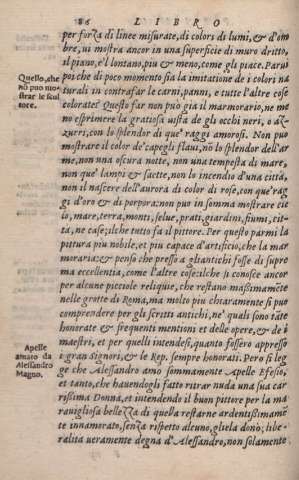 86 LIBRO
per forza di linee misurate, di colori di lumi, & d'om
bre, ui mostra ancor in una superficie di muro dritto,
il piano, e'l lontano, piu & meno, come gli piace. Parui
poi che di poco momento sia la imitatione de i colori na
turali in contrafar le carni, panni, e tutte l'altre cose
colorate? Questo far non può già il marmorario, ne me
no esprimere la gratiosa uista de gli occhi neri, o az-
zurri, con lo splendor di que' raggi amorosi. Non può
mostrare il color de' capegli flaui, nò lo splendor dell'ar
me, non una oscura notte, non una tempesta di mare,
non que' lampi & saette, non lo incendio d'una città,
non il nascere dell'aurora di color di rose, con que' rag
gi d'oro & di porpora: non puo in somma mostrare cie
lo, mare, terra, monti, selue, prati, giardini, fiumi, cit-
ta, ne case; ilche tutto fa il pittore. Per questo parmi la
pittura più nobile, et piu capace d'artificio, che la mar
moraria: & penso che presso a gli antichi fosse di supre
ma eccellentia, come l'altre cose: ilche si conosce ancor
per alcune picciole reliquie, che restano maßimamēte
nelle grotte di Roma, ma molto piu chiaramente si puo
comprendere per gli scritti antichi, ne' quali sono tāte
honorate & frequenti mentioni et delle opere, & de i
maestri, et per quelli intendesi, quanto fossero appresso
i gran Signori, & le Rep. sempre honorati. Pero si leg
ge che Alessandro amo sommamente Apelle Efesio,
et tanto, che hauendogli fatto ritrar nuda una sua car
rißima Donna, et intendendo il buon pittore per la ma
rauigliosa bellezza di quella restarne ardentißimamēte
innamorato, senza rispetto alcuno, gliela donò: libe-
ralita ueramente degna d'Alessandro, non solamente
Quello, che
nō può mo-
strar le scul
tore.
Apelle
amato da
Alessandro
Magno.